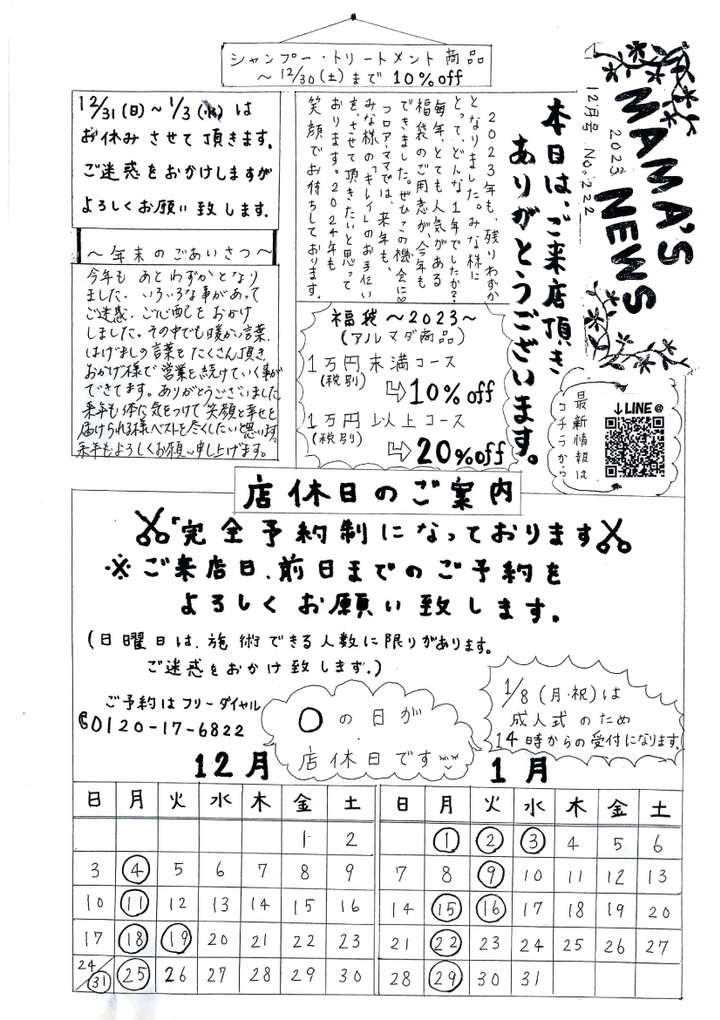 シャンプー・トリートメント商品
～12/30(土)まで 10%off
MAMA'S
NEWS
2023
12月号 No.222
本日は、ご来店頂き
ありがとうございます。
2023年も、残りわずか
となりました。みな様に
とって、どんな1年でしたか?
毎年、とても人気がある
福袋のご用意が、今年も
できました。ぜひこの機会に♡
フロア・ママでは、来年も、
みな様の「キレイ」のお手伝い
を、させて頂きたいと思って
おります。2024年も
笑顔でお待ちしております。
12/31(日)～1/3(水)は
お休みさせて頂きます。
ご迷惑をおかけしますが
よろしくお願い致します。
～年末のごあいさつ～
今年も あとわずかとなり
ました. いろいろな事があって
ご迷惑. ご心配を おかけ
しました。その中でも暖かい言葉.
はげましの言葉を たくさん頂き
おかげ様で 営業を続けていく事が
できてます。ありがとうございました
来年も体に気をつけて 笑顔と幸せを
届けられる様ベストを尽くしたいと思います。
来年もよろしくお願い申し上げます。
福袋～2023～
(アルマダ商品)
1万円未満コース
(税別)
10%off
1万円以上コース
(税別)
20%off
↓LINE@
最新情報は
コチラから
店休日のご案内
「完全予約制になっております
※ご来店日、前日までのご予約を
よろしくお願い致します。
(日曜日は、施術できる人数に限りがあります。
ご迷惑をおかけ致します。)
ご予約はフリーダイヤル
0120-17-6822
○の日が
店休日です
1/8(月・祝)は
成人式のため
14時からの受付になります。
12月
日 月 火 水 木 金 土
1 2
3 4 5 6 7 8 9
10 11 12 13 14 15 16
17 18 19 20 21 22 23
24/31 25 26 27 28 29 30
1月
日 月 火 水 木 金 土
1 2 3 4 5 6
7 8 9 10 11 12 13
14 15 16 17 18 19 20
21 22 23 24 25 26 27
28 29 30 31